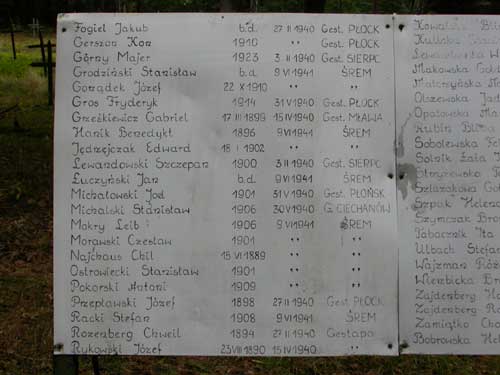 Fogiel Jakub b.d. 27 II 1940 Gest. PŁOCK
Gerszon Kon 1910 ,, Gest. PŁOCK
Górny Majer 1923 3 II 1940 Gest. SIERPC
Grodziński Stanisław b.d. 9 VI 1941 ŚREM
Gorądek Józef 22 X 1910 ,, ,,
Gros Fryderyk 1914 31 V 1940 Gest. PŁOCK
Grześkiewicz Gabriel 17 III 1899 15 IV 1940 Gest. MŁAWA
Hanik Benedykt 1896 9 VI 1941 ŚREM
Jędrzejczak Edward 18 I 1902 ,, ,,
Lewandowski Szczepan 1900 3 II 1940 Gest. SIERPC
Łuczyński Jan b.d. 9 VI 1941 ŚREM
Michałowski Jod 1901 31 V 1940 Gest. PŁOŃSK
Michalski Stanisław 1906 30 V 1940 G. CIECHANÓW
Mokry Leib 1906 9 VI 1941 ŚREM
Morawski Czesław 1901 ,, ,,
Najchaus Chil 15 VI 1889 ,, ,,
Ostrowiecki Stanisław 1901 ,, ,,
Pokorski Antoni 1909 ,, ,,
Przepławski Józef 1898 27 II 1940 Gest. PŁOCK
Racki Stefan 1908 9 VI 1941 ŚREM
Rozenberg Chweil 1894 27 II 1940 Gestapo
Rykowski Józef 23 VIII 1890 15 IV 1940 ,,
Makowska
Olszewska
Opatowska
Rubin
Sobolewska
Szlazakowa
Szpak Helen
Szymczak
Tabacznik Ita
Ulbach Stefan
Wajzman
Wierzbicka
Zajdenberg
Zajdenberg
Zamiątko
Bobrowska